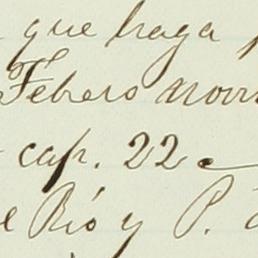 que haga
Febrero novi
cap. 22
el Río y P. d